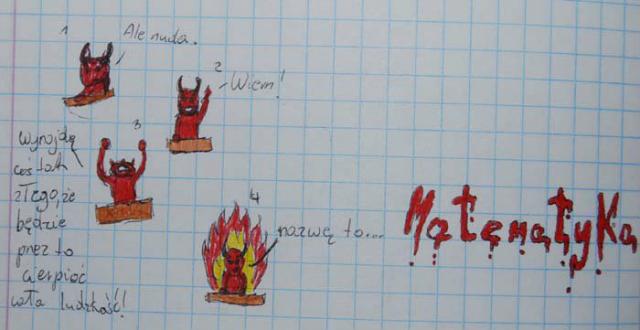 1
Ale nuda.
2
Wiem!
3
wynajdę
coś tak
złego, że
będzie
przez to
cierpieć
cała ludzkość!
4
nazwę to...
Matematyka